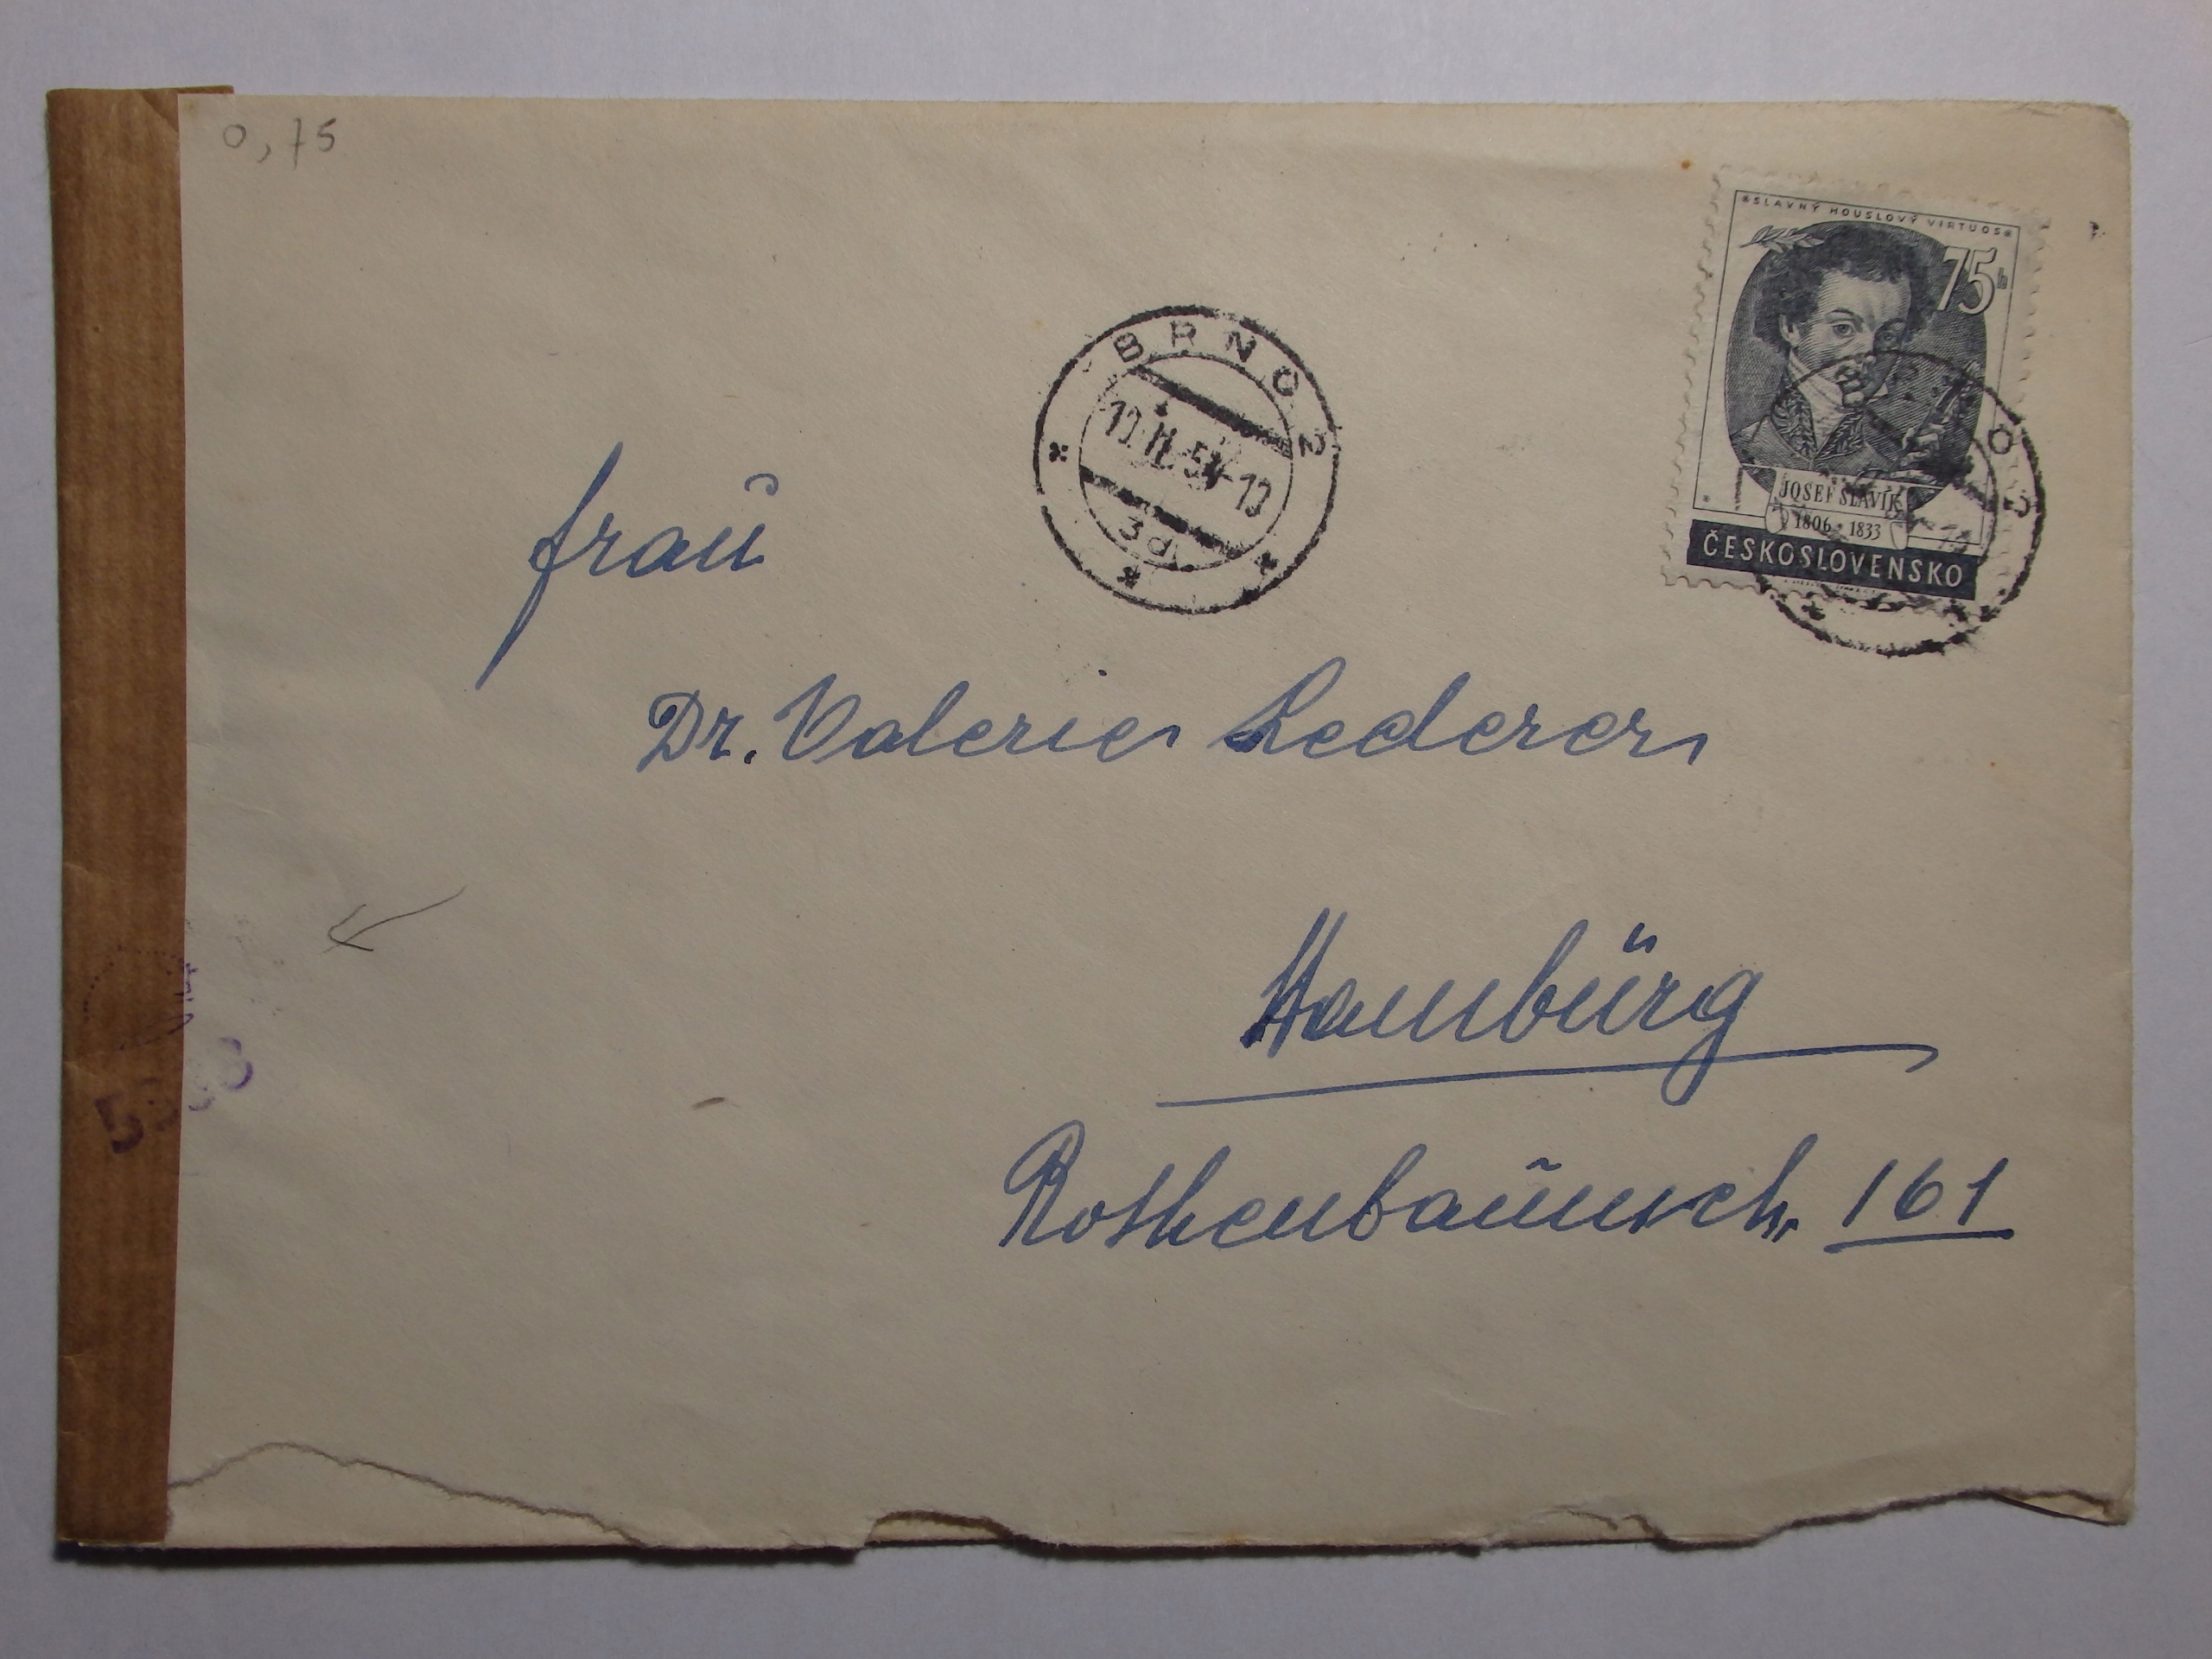 0,75
*SLAVNÝ HOUSLOVÝ VIRTUOS*
75h
JOSEF SLAVÍK
1806 * 1833
ČESKOSLOVENSKO
BRNO 2
3d
Frau
Dr. Valerie Lederer
Hambürg
Rothenbaumch. 161